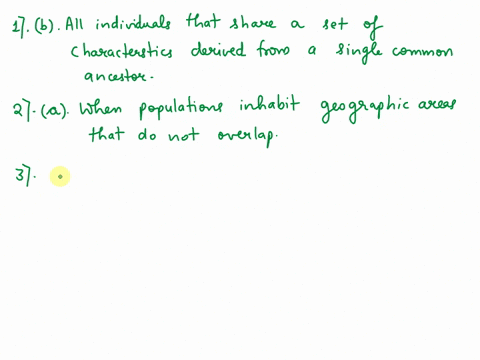 1]. (b). All individuals that share a set of
characterstics derived from a single common
ancestor.
2]. (a). When populations inhabit geographic areas
that do not overlap.
3].